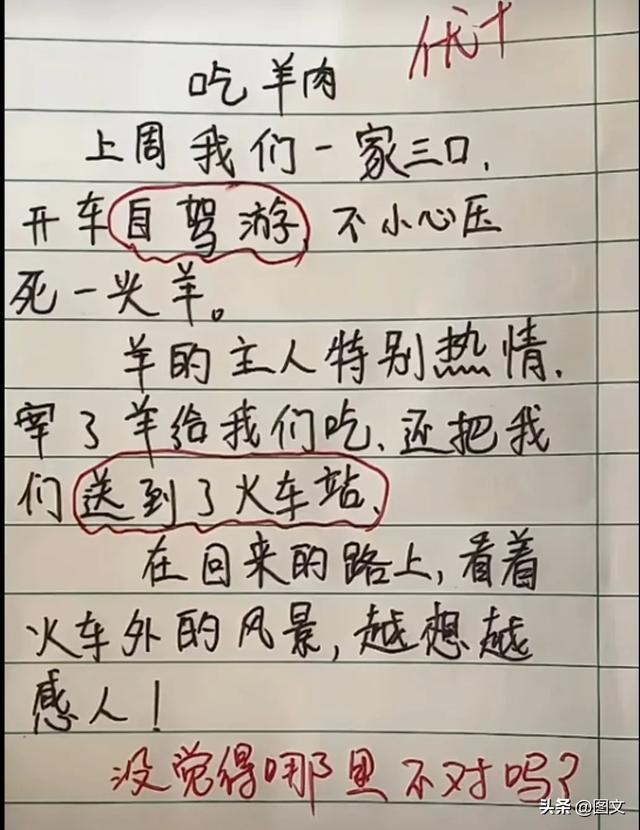 优+
吃羊肉
上周我们一家三口,
开车自驾游 不小心压
死一头羊。
羊的主人特别热情,
宰了羊给我们吃、还把我
们送到了火车站、
在回来的路上,看着
火车外的风景,越想越
感人!
没觉得哪里不对吗?
头条 @图文